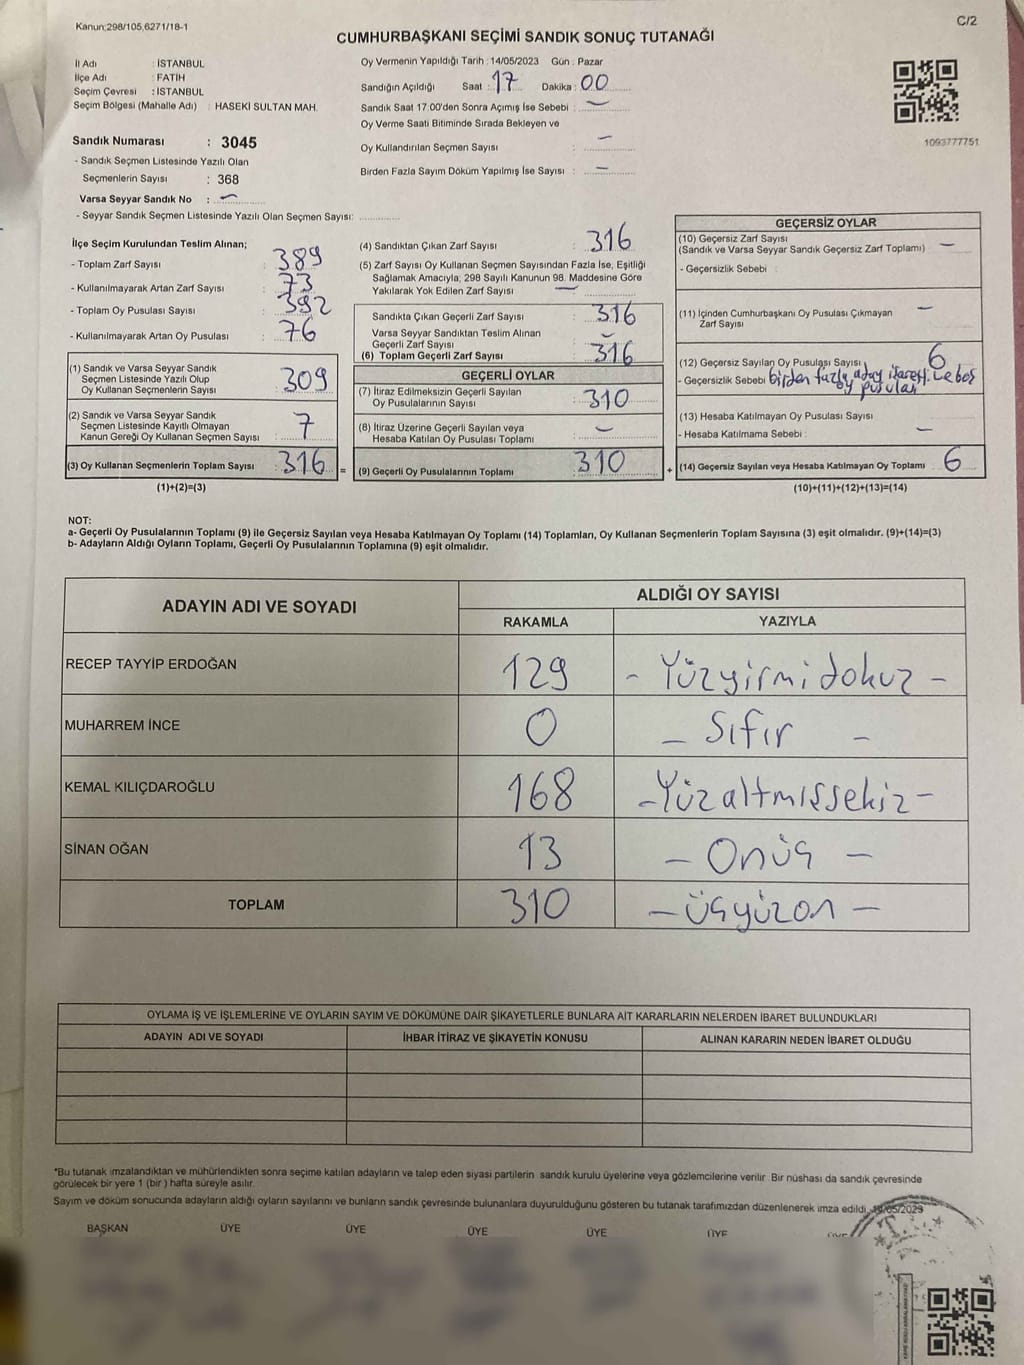 Kanun:298/105,6271/18-1
C/2
CUMHURBAŞKANI SEÇİMİ SANDIK SONUÇ TUTANAĞI
İl Adı : İSTANBUL
İlçe Adı : FATİH
Seçim Çevresi : İSTANBUL
Seçim Bölgesi (Mahalle Adı) : HASEKİ SULTAN MAH.
Sandık Numarası : 3045
- Sandık Seçmen Listesinde Yazılı Olan
Seçmenlerin Sayısı : 368
Varsa Seyyar Sandık No : —
- Seyyar Sandık Seçmen Listesinde Yazılı Olan Seçmen Sayısı:
Oy Vermenin Yapıldığı Tarih : 14/05/2023 Gün : Pazar
Sandığın Açıldığı Saat : 17 Dakika : 00
Sandık Saat 17.00'den Sonra Açımış İse Sebebi : —
Oy Verme Saati Bitiminde Sırada Bekleyen ve
Oy Kullandırılan Seçmen Sayısı : —
Birden Fazla Sayım Döküm Yapılmış İse Sayısı : —
1093777751
İlçe Seçim Kurulundan Teslim Alınan;
- Toplam Zarf Sayısı : 389
- Kullanılmayarak Artan Zarf Sayısı : 73
- Toplam Oy Pusulası Sayısı : 392
- Kullanılmayarak Artan Oy Pusulası : 76
(1) Sandık ve Varsa Seyyar Sandık
Seçmen Listesinde Yazılı Olup
Oy Kullanan Seçmenlerin Sayısı : 309
(2) Sandık ve Varsa Seyyar Sandık
Seçmen Listesinde Kayıtlı Olmayan
Kanun Gereği Oy Kullanan Seçmen Sayısı : 7
(3) Oy Kullanan Seçmenlerin Toplam Sayısı : 316 =
(1)+(2)=(3)
(4) Sandıktan Çıkan Zarf Sayısı : 316
(5) Zarf Sayısı Oy Kullanan Seçmen Sayısından Fazla İse, Eşitliği
Sağlamak Amacıyla; 298 Sayılı Kanunun 98. Maddesine Göre
Yakılarak Yok Edilen Zarf Sayısı —
Sandıkta Çıkan Geçerli Zarf Sayısı : 316
Varsa Seyyar Sandıktan Teslim Alınan
Geçerli Zarf Sayısı : —
(6) Toplam Geçerli Zarf Sayısı : 316
GEÇERLİ OYLAR
(7) İtiraz Edilmeksizin Geçerli Sayılan
Oy Pusulalarının Sayısı : 310
(8) İtiraz Üzerine Geçerli Sayılan veya
Hesaba Katılan Oy Pusulası Toplamı : —
(9) Geçerli Oy Pusulalarının Toplamı : 310 +
GEÇERSİZ OYLAR
(10) Geçersiz Zarf Sayısı
(Sandık ve Varsa Seyyar Sandık Geçersiz Zarf Toplamı) —
- Geçersizlik Sebebi :
(11) İçinden Cumhurbaşkanı Oy Pusulası Çıkmayan
Zarf Sayısı —
(12) Geçersiz Sayılan Oy Pusulası Sayısı 6
- Geçersizlik Sebebi birden fazla aday işareti. Ve boş
oy pusulası
(13) Hesaba Katılmayan Oy Pusulası Sayısı
- Hesaba Katılmama Sebebi : —
(14) Geçersiz Sayılan veya Hesaba Katılmayan Oy Toplamı 6
(10)+(11)+(12)+(13)=(14)
NOT:
a- Geçerli Oy Pusulalarının Toplamı (9) ile Geçersiz Sayılan veya Hesaba Katılmayan Oy Toplamı (14) Toplamları, Oy Kullanan Seçmenlerin Toplam Sayısına (3) eşit olmalıdır. (9)+(14)=(3)
b- Adayların Aldığı Oyların Toplamı, Geçerli Oy Pusulalarının Toplamına (9) eşit olmalıdır.
ADAYIN ADI VE SOYADI ALDIĞI OY SAYISI
RAKAMLA YAZIYLA
RECEP TAYYİP ERDOĞAN 129 - Yüzyirmidokuz -
MUHARREM İNCE 0 - Sıfır -
KEMAL KILIÇDAROĞLU 168 - Yüzaltmışsekiz -
SİNAN OĞAN 13 - Onüç -
TOPLAM 310 - üçyüzon -
OYLAMA İŞ VE İŞLEMLERİNE VE OYLARIN SAYIM VE DÖKÜMÜNE DAİR ŞİKAYETLERLE BUNLARA AİT KARARLARIN NELERDEN İBARET BULUNDUKLARI
ADAYIN ADI VE SOYADI İHBAR İTİRAZ VE ŞİKAYETİN KONUSU ALINAN KARARIN NEDEN İBARET OLDUĞU
*Bu tutanak imzalandıktan ve mühürlendikten sonra seçime katılan adayların ve talep eden siyasi partilerin sandık kurulu üyelerine veya gözlemcilerine verilir. Bir nüshası da sandık çevresinde
görülecek bir yere 1 (bir) hafta süreyle asılır.
Sayım ve döküm sonucunda adayların aldığı oyların sayılarını ve bunların sandık çevresinde bulunanlara duyurulduğunu gösteren bu tutanak tarafımızdan düzenlenerek imza edildi. 14/05/2023
BAŞKAN ÜYE ÜYE ÜYE ÜYE ÜYE ÜYE
T.